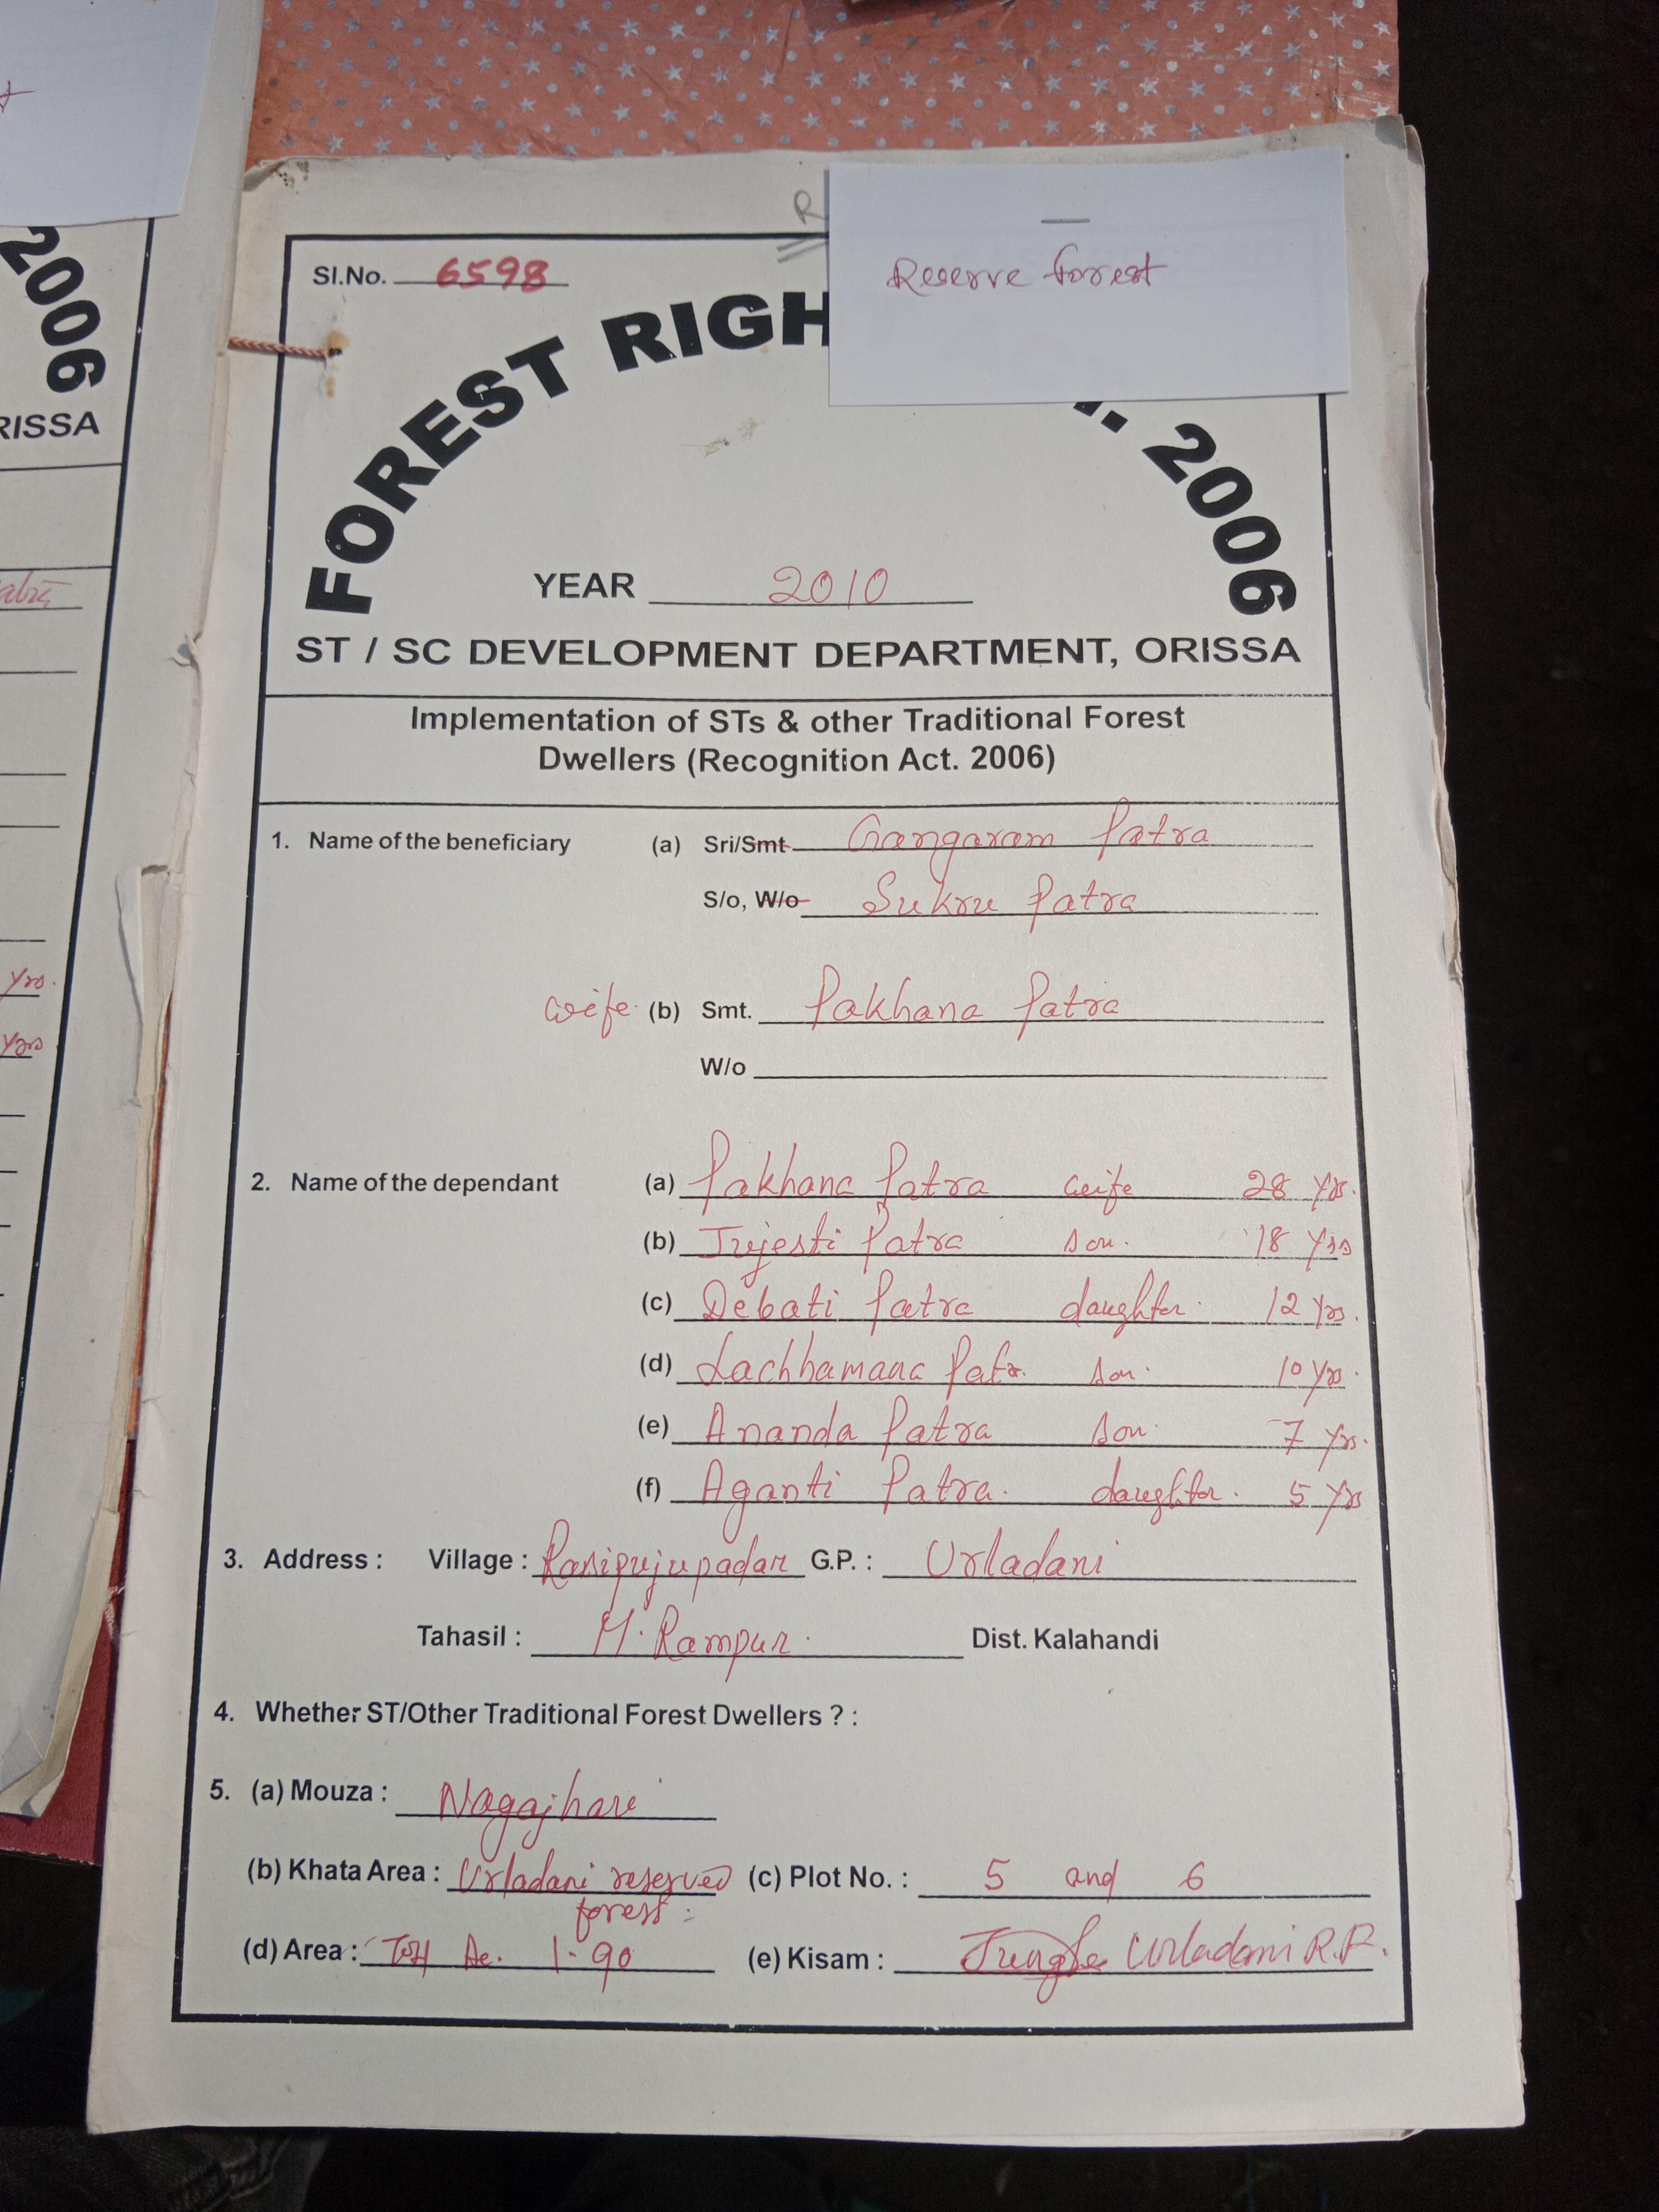 Reserve forest
R
Sl.No. 6598
FOREST RIGH . 2006
YEAR 2010
ST / SC DEVELOPMENT DEPARTMENT, ORISSA
Implementation of STs & other Traditional Forest
Dwellers (Recognition Act. 2006)
1. Name of the beneficiary (a) Sri/Smt Gangaram Patra
S/o, W/o Sukru Patra
wife (b) Smt. Pakhana Patra
W/o
2. Name of the dependant (a) Pakhana Patra wife 28 Yrs.
(b) Jujesti Patra son. 18 Yrs
(c) Debati Patra daughter. 12 Yrs.
(d) Lachhamana Patr. son. 10 Yrs.
(e) Ananda Patra son. 7 Yrs.
(f) Aganti Patra. daughter. 5 Yrs
3. Address : Village : Ranipujupadar G.P. : Urladani
Tahasil : M. Rampur. Dist. Kalahandi
4. Whether ST/Other Traditional Forest Dwellers ? :
5. (a) Mouza : Nagajhari
(b) Khata Area : Urladani reserved (c) Plot No. : 5 and 6
forest :
(d) Area : Ac. 1.90 (e) Kisam : Jungle Urladani R.F.
2006
RISSA
Yrs.
Yrs